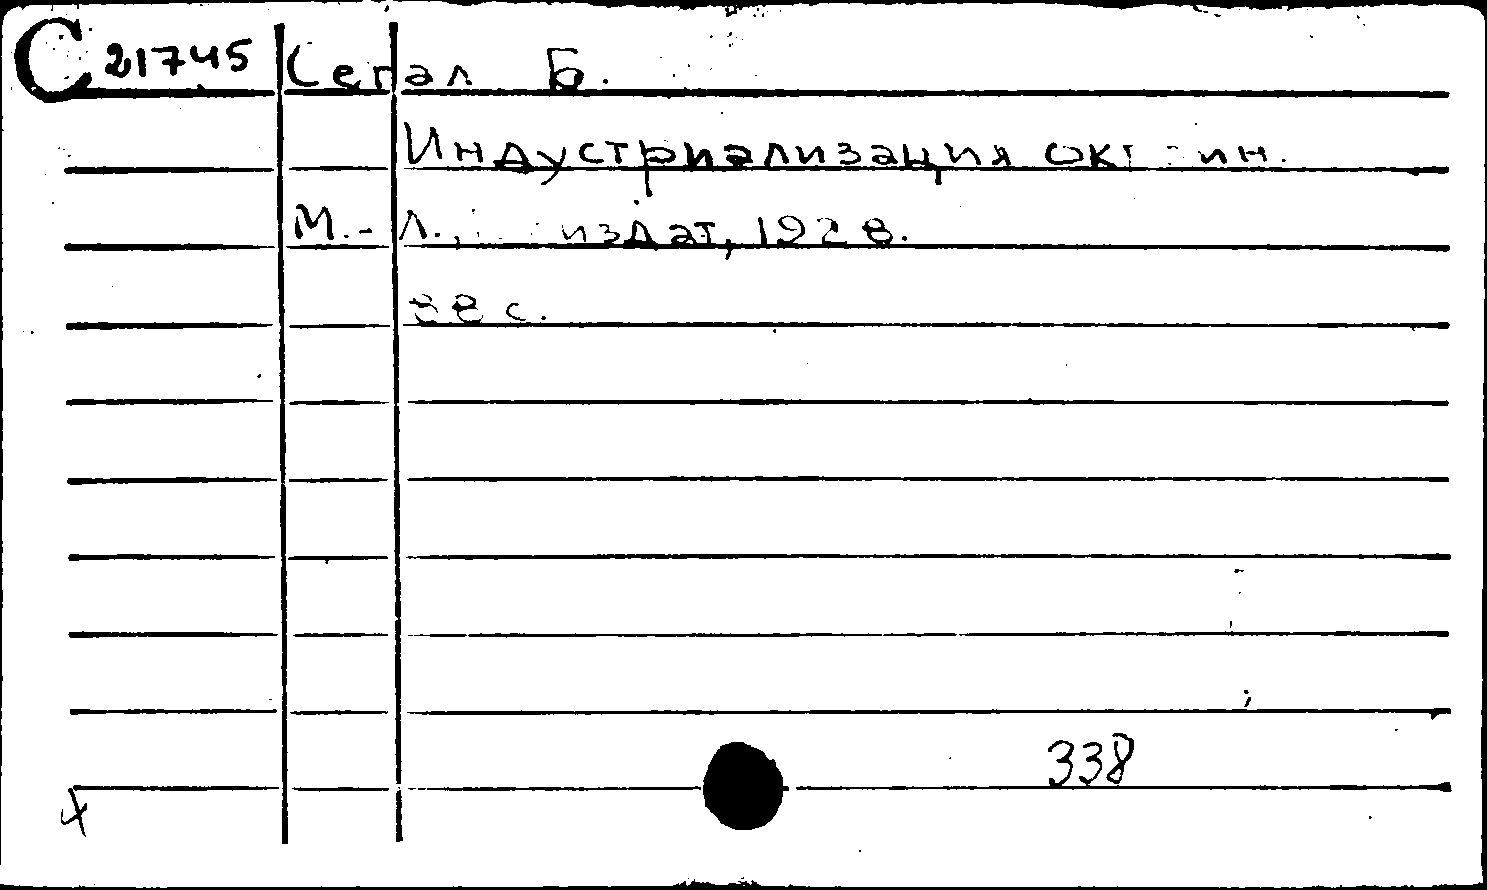 С 21745 Сегал Б.
Индустриализация
М.-Л., издат, 1928.
88 с.
338